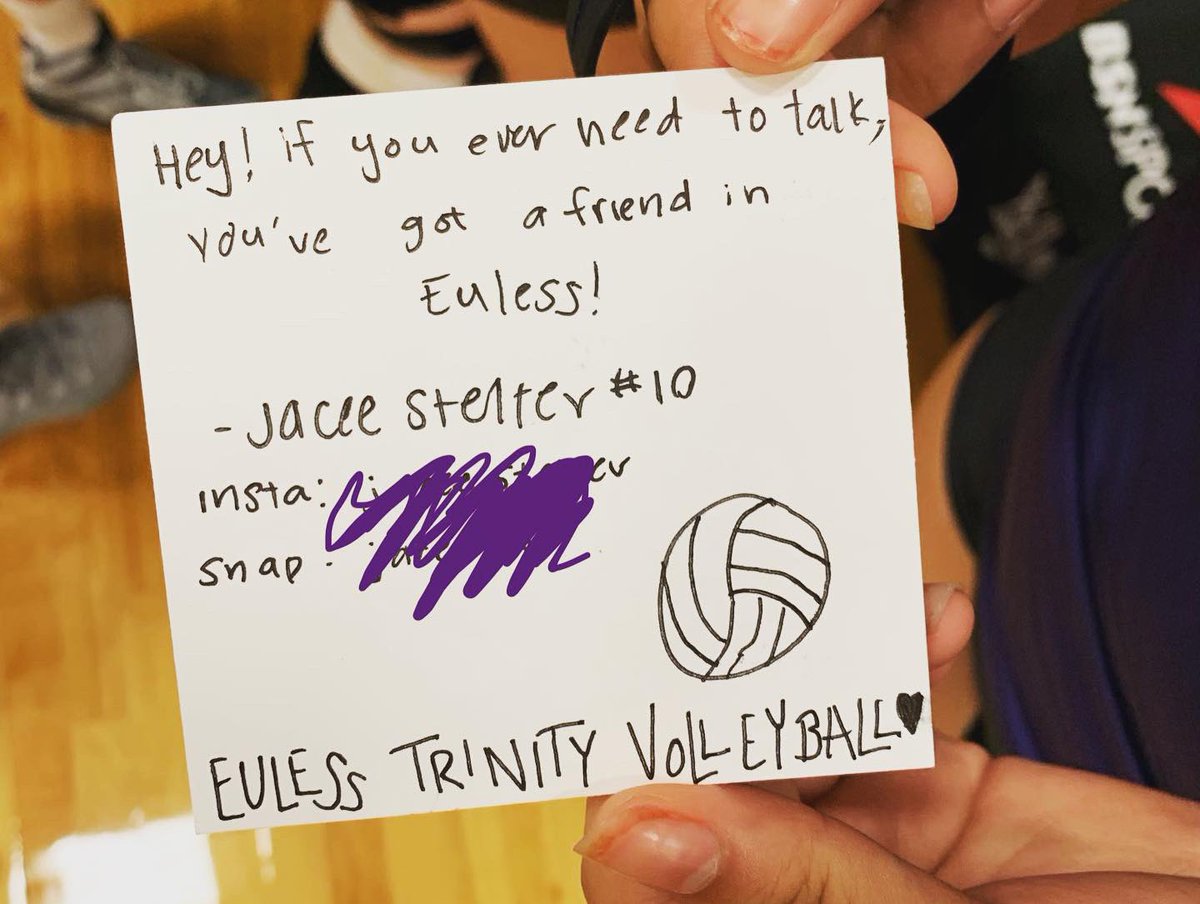 Hey! if you ever need to talk,
you've got a friend in
Euless!
- Jacee Stelter #10
insta:
snap:
EULESS TRINITY VOLLEYBALL♥